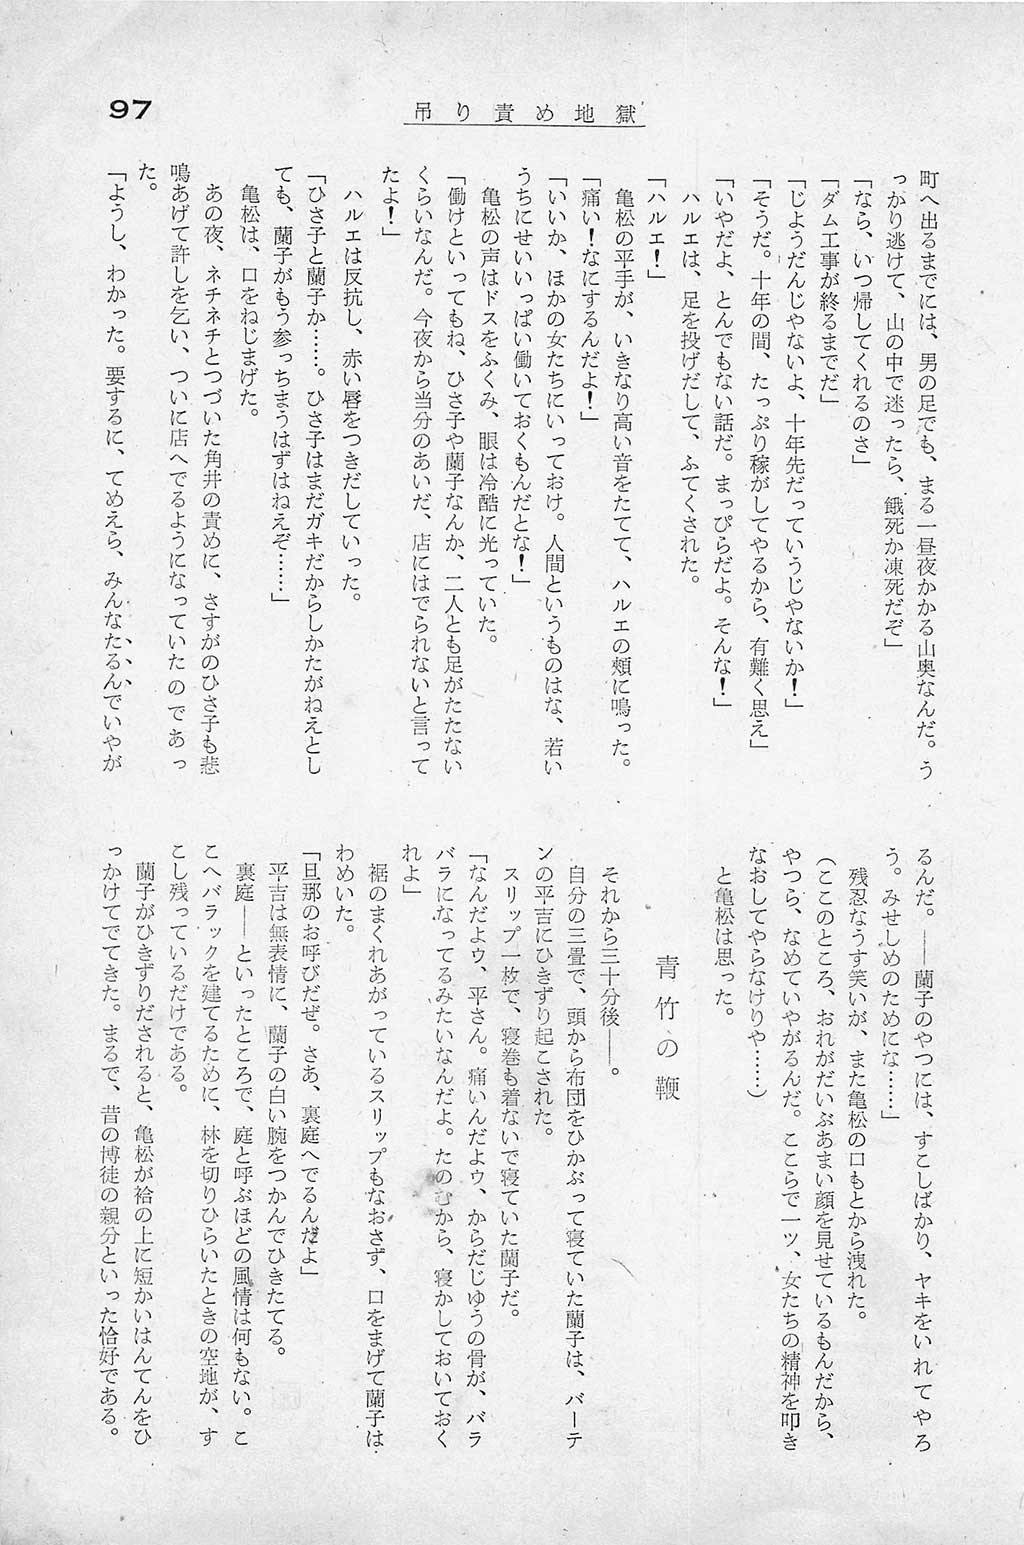 97
吊り責め地獄
町へ出るまでには、男の足でも、まる一昼夜かかる山奥なんだ。う
っかり逃げて、山の中で迷ったら、餓死か凍死だぞ」
「なら、いつ帰してくれるのさ」
「ダム工事が終るまでだ」
「じようだんじゃないよ、十年先だっていうじゃないか！」
「そうだ。十年の間、たっぷり稼がしてやるから、有難く思え」
「いやだよ、とんでもない話だ。まっぴらだよ。そんな！」
ハルエは、足を投げだして、ふてくされた。
「ハルエ！」
亀松の平手が、いきなり高い音をたてて、ハルエの頬に鳴った。
「痛い！なにするんだよ！」
「いいか、ほかの女たちにいっておけ。人間というものはな、若い
うちにせいいっぱい働いておくもんだとな！」
亀松の声はドスをふくみ、眼は冷酷に光っていた。
「働けといってもね、ひさ子や蘭子なんか、二人とも足がたたない
くらいなんだ。今夜から当分のあいだ、店にはでられないと言って
たよ！」
ハルエは反抗し、赤い唇をつきだしていった。
「ひさ子と蘭子か……。ひさ子はまだガキだからしかたがねえとし
ても、蘭子がもう参っちまうはずはねえぞ……」
亀松は、口をねじまげた。
あの夜、ネチネチとつづいた角井の責めに、さすがのひさ子も悲
鳴あげて許しを乞い、ついに店へでるようになっていたのであっ
た。
「ようし、わかった。要するに、てめえら、みんなたるんでいやが
るんだ。――蘭子のやつには、すこしばかり、ヤキをいれてやろ
う。みせしめのためにな……」
残忍なうす笑いが、また亀松の口もとから洩れた。
（ここのところ、おれがだいぶあまい顔を見せているもんだから、
やつら、なめていやがるんだ。ここらで一ツ、女たちの精神を叩き
なおしてやらなけりや……）
と亀松は思った。
青竹の鞭
それから三十分後――。
自分の三畳で、頭から布団をひかぶって寝ていた蘭子は、バーテ
ンの平吉にひきずり起こされた。
スリップ一枚で、寝巻も着ないで寝ていた蘭子だ。
「なんだよウ、平さん。痛いんだよゥ、からだじゆうの骨が、バラ
バラになってるみたいなんだよ。たのむから、寝かしておいておく
れよ」
裾のまくれあがっているスリップもなおさず、口をまげて蘭子は
わめいた。
「旦那のお呼びだぜ。さあ、裏庭へでるんだよ」
平吉は無表情に、蘭子の白い腕をつかんでひきたてる。
裏庭――といったところで、庭と呼ぶほどの風情は何もない。こ
こへバラックを建てるために、林を切りひらいたときの空地が、す
こし残っているだけである。
蘭子がひきずりだされると、亀松が袷の上に短かいはんてんをひ
っかけてでてきた。まるで、昔の博徒の親分といった恰好である。